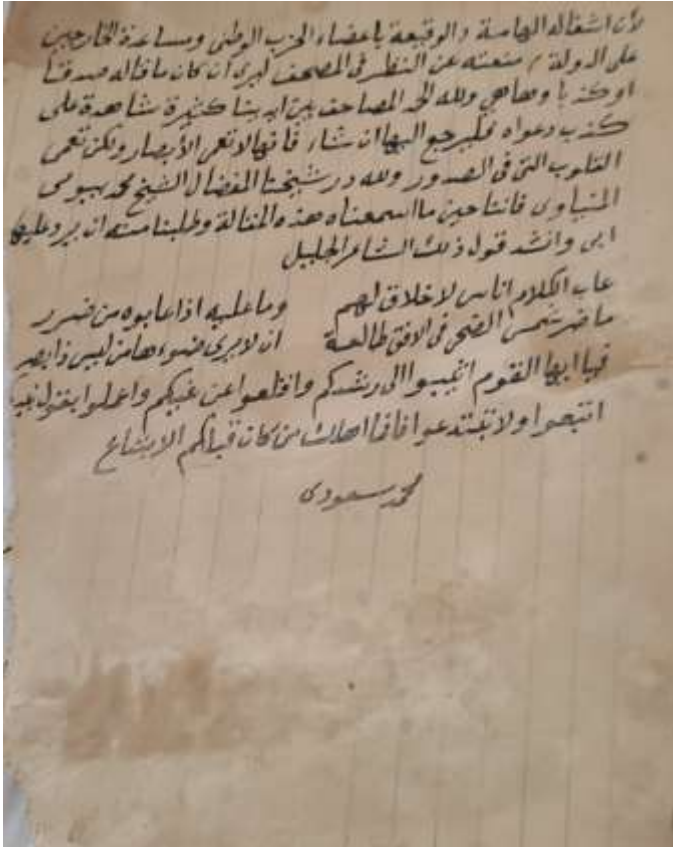 لأن اشغاله الهامة والوقيعة باعضاء الحزب الوطنى ومساعدة الخارجين
على الدولة، منعته عن النظر فى المصحف ليرى ان كان ما قاله صدقا
اوكذبا وهاهي ولله الحمد المصاحف بين ايدينا كثيرة شاهدة على
كذب دعواه فليرجع اليها ان شاء فانها لا تعمى الأبصار ولكن تعمى
القلوب التى فى الصدور ولله در شيخنا المفضال الشيخ محمد بيومى
المنياوى فاننا حين ما اسمعناه هذه المقالة وطلبنا منه ان يرد عليها
ابى وانشد قول ذلك الشاعر الجليل
عاب الكلام اناس لا خلاق لهم وما عليه اذا عابوه من ضرر
ما ضر شمس الضحى فى الافق طالعة ان لا يرى ضوءها من ليس ذا بصر
فيا ايها القوم انيبوا الى رشدكم واقلعوا عن غيكم واعملوا بقول
اتبعوا ولا تبتدعوا فانما اهلك من كان قبلكم الابتداع
محمد سعودى